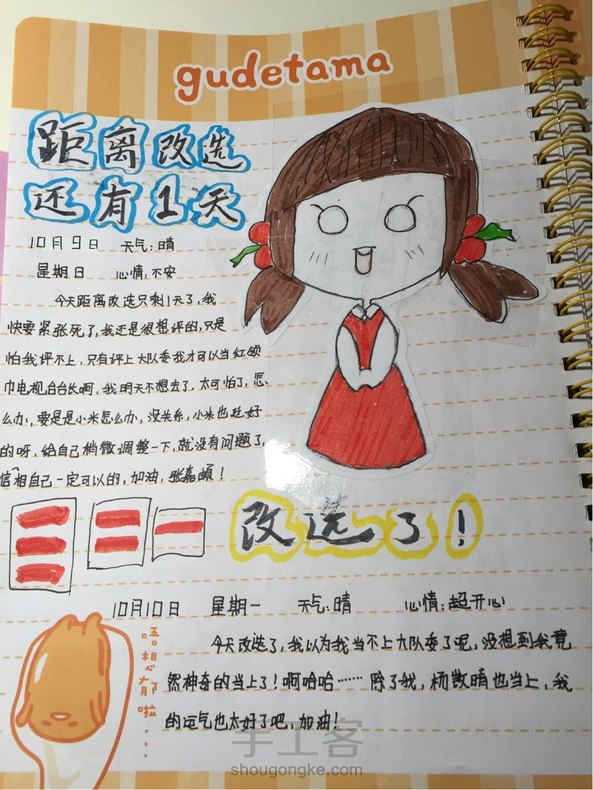 gudetama
距离改选
还有1天
10月9日 天气:晴
星期日 心情:不安
今天距离改选只剩1天了,我
快要紧张死了,我还是很想评的,只是
怕我评不上,只有评上大队委我才可以当红领
巾电视台台长啊,我明天不想去了,太可怕了,怎
么办,要是是小米怎么办,没关系,小米也挺好
的呀,给自己稍微调整一下,就没有问题了,
信相自己一定可以的,加油,张嘉
改选了!
10月10日 星期一 天气:晴 心情:超开心
今天改选了,我以为我当不上大队委了呢,没想到我竟
然神奇的当上了!啊哈哈……除了我,杨晴也当上,我
的运气也太好了吧,加油!
唔想郁啦……
手工客
shougongke.com